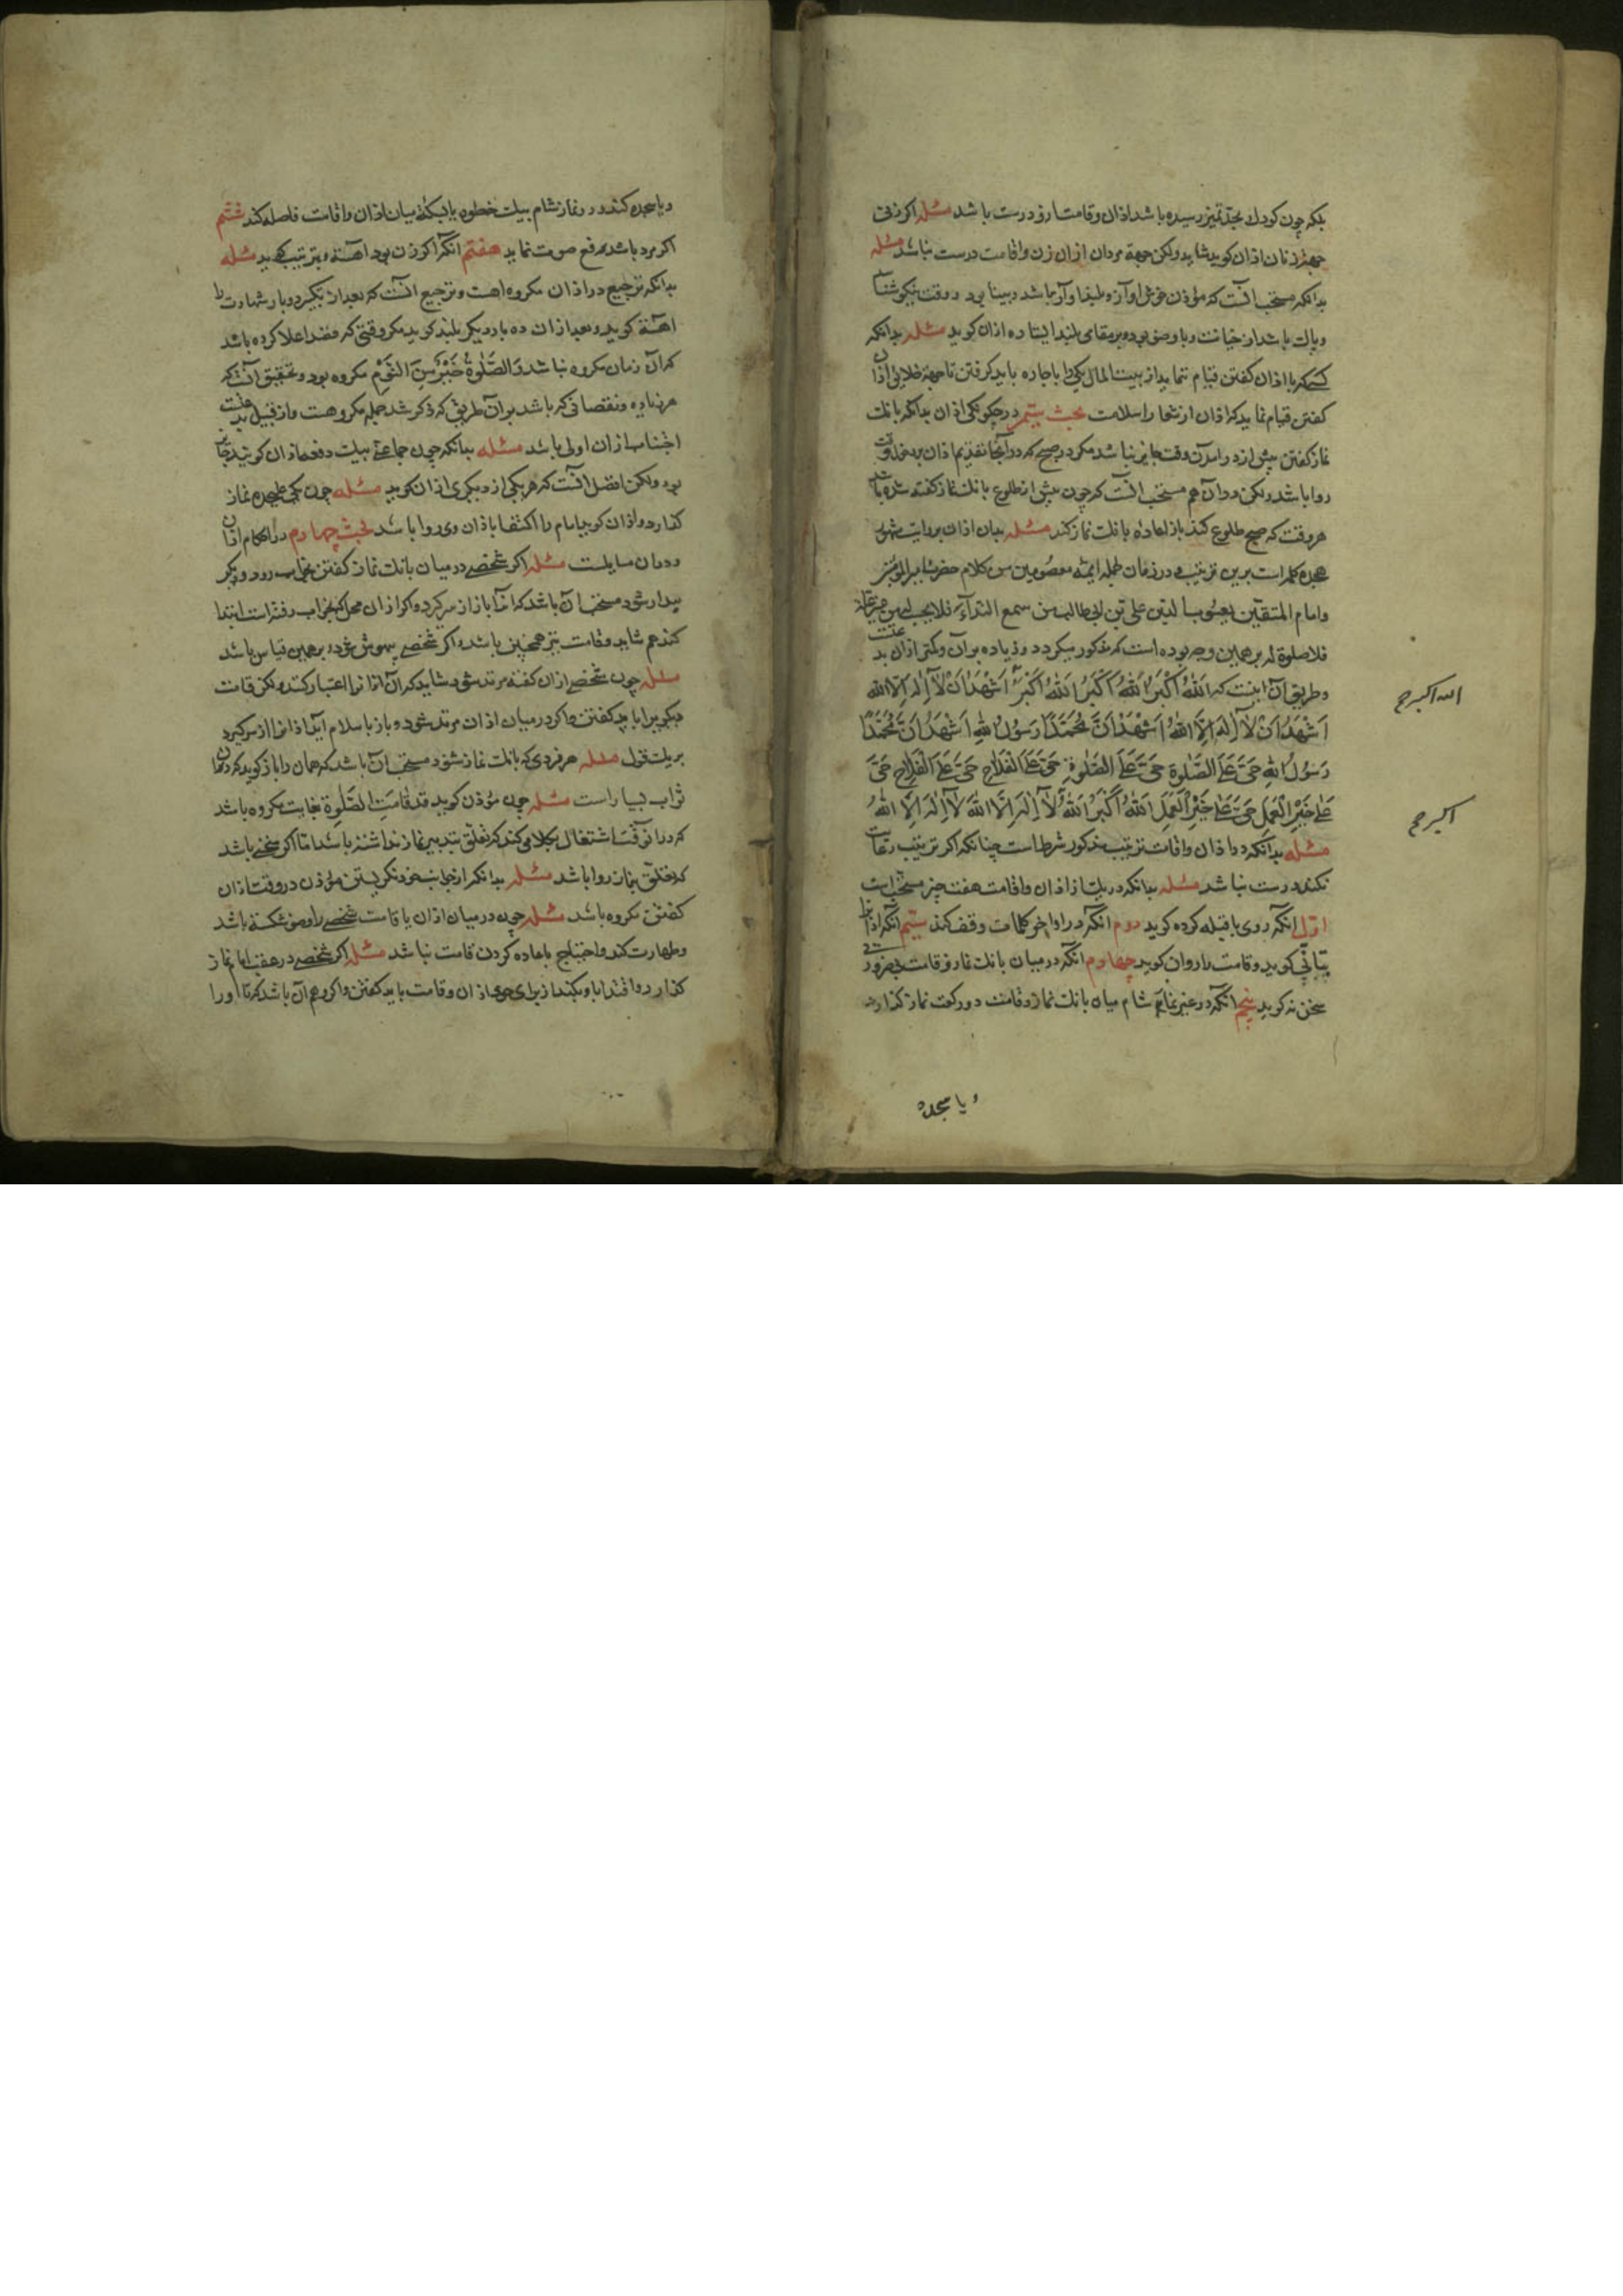 بلکه چون کودك بحدّ تمیز رسیده باشد اذان وقامت ازو درست باشد مسئله اکر زنی
جهة زنان اذان کوید شاید ولکن جهة مردان اذان زن واقامت درست نباشد مسئله
بدانکه مستحب آنست که مؤذن خوش اواز و بلند اواز باشد و بینا بود و وقت نیکو شناسد
وپاك باشد از خیانت وبا وضو بوده بر مقامی بلند ایستاده اذان کوید مسئله بدانکه
کسیکه با اذان کفتن قیام نماید از بیت المال یکی را باجاره باید کرفتن تا جهة اذان
کفتن قیام نماید که اذان از شعار اسلامست بحث سیّم در چکونکی اذان بدانکه بانك
نماز کفتن پیش از در آمدن وقت جایز نباشد مکر در صبح که در آنجا تقدیم اذان بر دخول وقت
روا باشد ولکن در آن هم مستحب آنست که چون پیش از طلوع بانك نماز کفته شده باشد
هر وقت که صبح طلوع کند باز اعاده بانك نماز کند مسئله بدان اذان بروایت مشهور
هجده کلمه است برین ترتیب و در زمان جمله ایمّه معصومین من کلام حضرت امیر المؤمنین
وامام المتقین یعسوب الدین علی بن ابی طالب من سمع النداء فلا یجب من غیر علة
فلا صلوة له بر همین وجه بوده است که مذکور میکردد وزیاده بر آن وکمتر از آن بدعتست
وطریق آن اینست که اَللهُ اَکْبَرُ اَللهُ اَکْبَرُ اَللهُ اَکْبَرُ اَشْهَدُ اَنْ لآ اِلٰهَ اِلّا الله
اَشْهَدُ اَنْ لآ اِلٰهَ اِلَّا اللهُ اَشْهَدُ اَنَّ مُحَمَّدًا رَسُولُ اللهِ اَشْهَدُ اَنَّ مُحَمَّدًا
رَسُولُ اللهِ حَیَّ عَلَی الصَّلٰوةِ حَیَّ عَلَی الصَّلٰوةِ حَیَّ عَلَی الْفَلَاحِ حَیَّ عَلَی الْفَلَاحِ حَیَّ
عَلٰی خَیْرِ الْعَمَلِ حَیَّ عَلٰی خَیْرِ الْعَمَلِ اَللهُ اَکْبَرُ اَللهُ لآ اِلٰهَ اِلَّا اللهُ لآ اِلٰهَ اِلَّا اللهُ
مسئله بدانکه در اذان واقامت ترتیب مذکور شرطست چنانکه اکر ترتیب رعایت
نکند درست نباشد مسئله بدانکه در هریك از اذان واقامت هفت چیز مستحب است
اوّل انکه روی با قبله کرده کوید دوم انکه در اواخر کلمات وقف کند سیّم انکه اذانرا
بتأنّی کوید وقامت را روان کوید چهارم انکه در میان بانك نماز وقامت بی ضرورتی
سخن نه کوید پنجم انکه در غیر نماز شام میان بانك نماز وقامت دو رکعت نماز کذارد
الله اکبر صح
اکبر صح
ویا سجده
ویا سجده کند و در نماز شام بیك خطوه یا بسکته میان اذان واقامت فاصله کند ششم
اکر مرد باشد برفع صوت نماید هفتم انکه اکر زن بود آهسته وبترتیب کوید مسئله
بدانکه ترجیع در اذان مکروه است وترجیع آنست که بعد از تکبیر دو بار شهادت را
آهسته کوید وبعد از آن دو بار دیکر بلند کوید مکر وقتی که قصد اعلا کرده باشد
که آن زمان مکروه نباشد وَالصَّلٰوةُ خَیْرٌ مِنَ النَّوْمِ مکروه بود وتحقیق آنست که
هر زیاده ونقصانی که باشد بر آن طریق که ذکر شد جمله مکروهست واز قبیل بدعتست
اجتناب از آن اولی باشد مسئله بدانکه چون جماعتی بیك دفعه اذان کویند جایز
بود ولکن افضل آنست که هر یکی از پی دیکری اذان کوید مسئله چون یکی علیحده نماز
کذارد واذان کوید امام را اکتفا باذان وی روا باشد بحث چهارم در احکام اذان
ودر آن مسایلست مسئله اکر شخصی در میان بانك نماز کفتن بخواب رود ودیکر
بیدار شود مستحب آن باشد که اذان را باز از سر کیرد واکر از آن محل که بخواب رفته است ابتدا
کند هم شاید وقامت نیز همچنین باشد واکر شخصی بیهوش شود بر همین قیاس باشد
مسئله چون شخصی اذان کفته مرتد شود شاید که آن اذانرا اعتبار کنند ولکن قامت
دیکریرا باید کفتن واکر در میان اذان مرتد شود وباز باسلام آید اذانرا از سر کیرد
بریك قول مسئله هر فردی که بانك نماز شنود مستحب آن باشد که همان را باز کوید که در آن
ثواب بسیار است مسئله چون مؤذن کوید قد قٰامَتِ الصَّلٰوة بغایت مکروه باشد
که در آنوقت اشتغال بکلامی کند که تعلّق بتدبیر نماز نداشته باشد امّا اکر سخنی باشد
که تعلّق بنماز روا باشد مسئله بدانکه از جانب خود نکریستن مؤذن در وقت اذان
کفتن مکروه باشد مسئله چون در میان اذان یا قامت شخصی را وضو شکسته باشد
وطهارت کند احتیاج باعاده کردن قامت نباشد مسئله اکر شخصی در عقب امام نماز
کذارد واقتدا باو نکند از برای خود اذان وقامت باید کفتن واکر وهم آن باشد که تا اورا